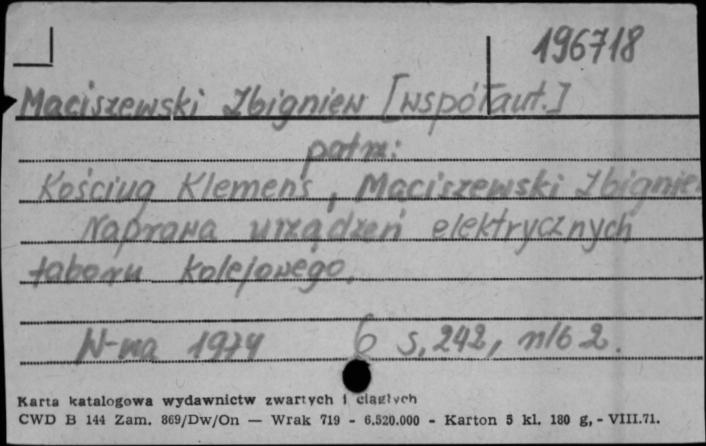 196718
Maciszewski Zbigniew [współaut.]
patrz:
Kościug Klemens, Maciszewski Zbignie
Naprawa urządzeń elektrycznych
taboru kolejowego.
W-wa 1974 6 s, 242, nlb 2.
Karta katalogowa wydawnictw zwartych i ciągłych
CWD B 144 Zam. 869/Dw/On — Wrak 719 - 6.520.000 - Karton 5 kl. 180 g, - VIII.71.